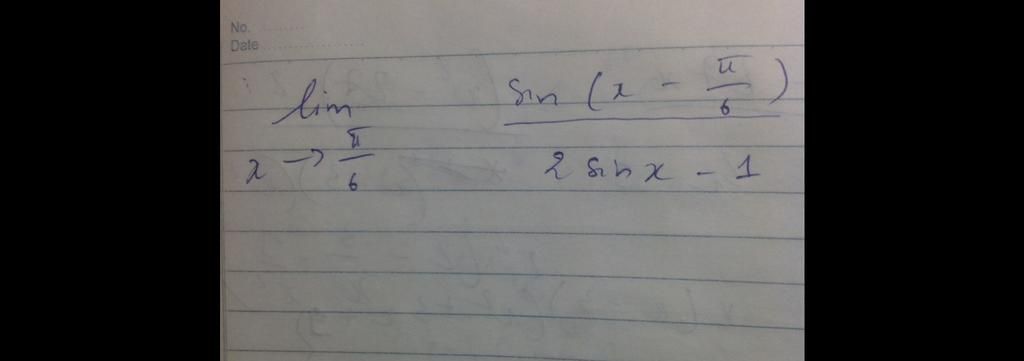 No.
Date
lim x → π/6 sin (x - π/6) / 2 sin x - 1